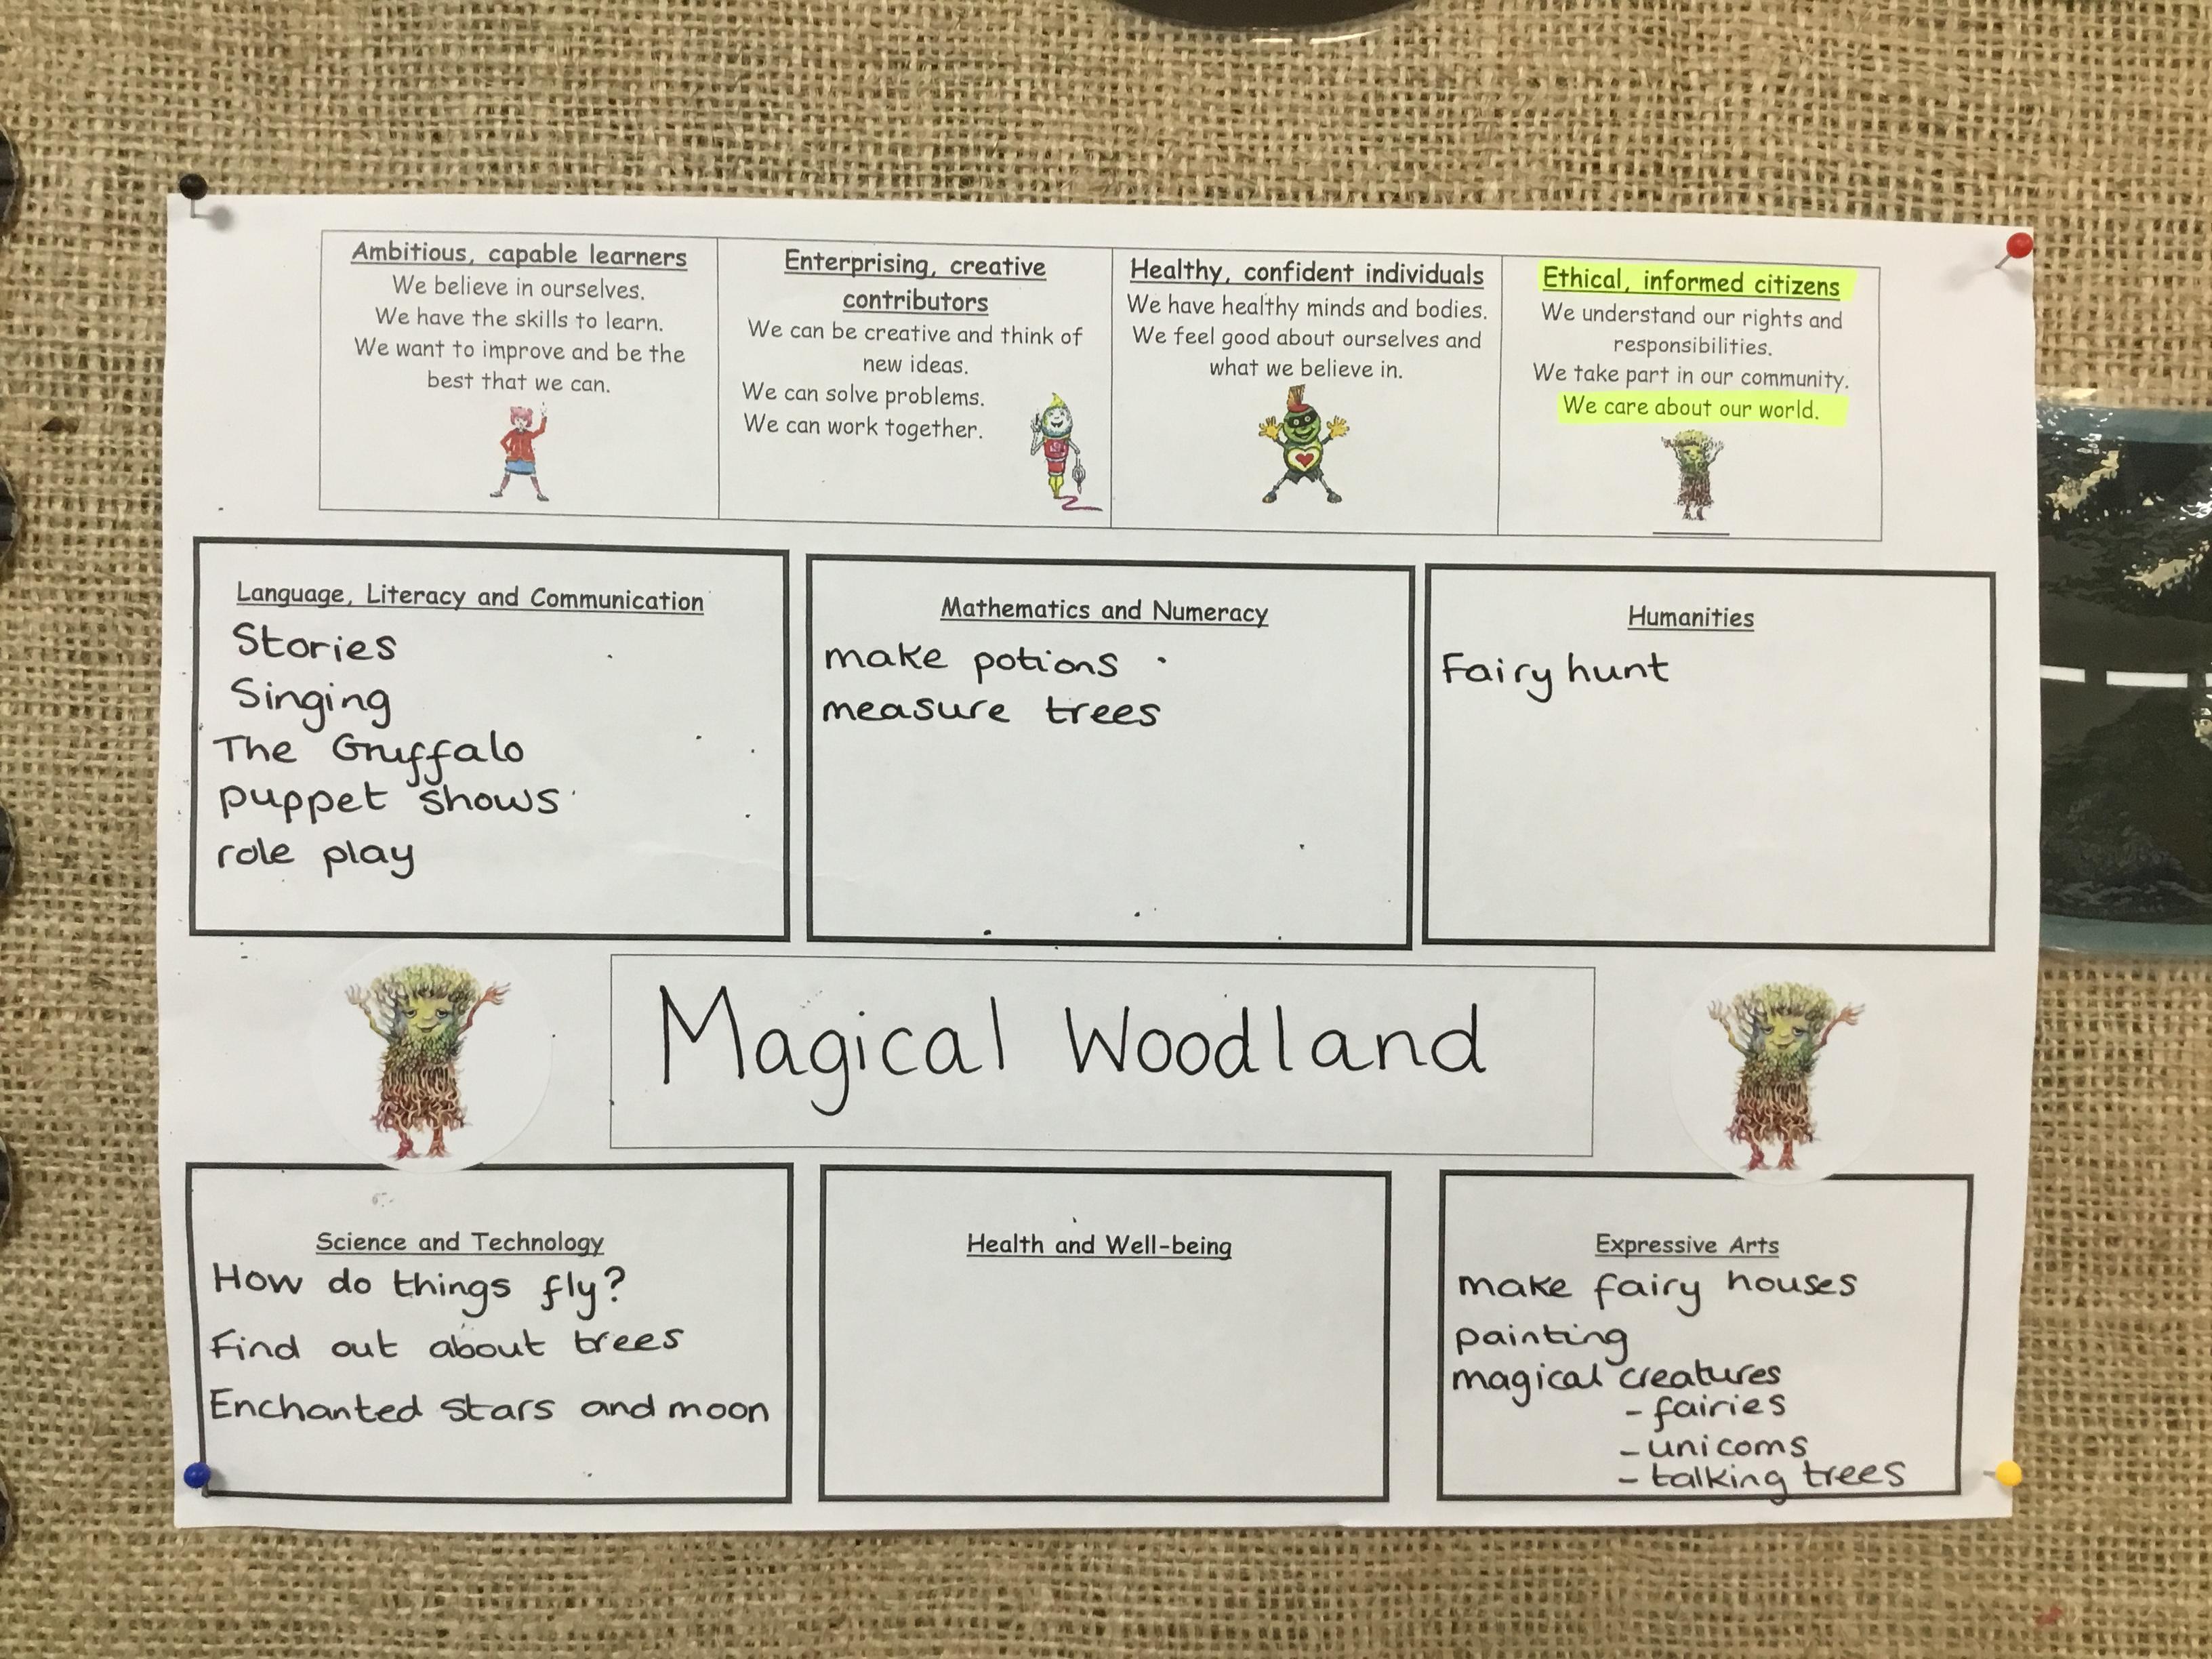 Ambitious, capable learners
We believe in ourselves.
We have the skills to learn.
We want to improve and be the
best that we can.
Enterprising, creative
contributors
We can be creative and think of
new ideas.
We can solve problems.
We can work together.
Healthy, confident individuals
We have healthy minds and bodies.
We feel good about ourselves and
what we believe in.
Ethical, informed citizens
We understand our rights and
responsibilities.
We take part in our community.
We care about our world.
Language, Literacy and Communication
Stories
Singing
The Gruffalo
puppet shows
role play
Mathematics and Numeracy
make potions
measure trees
Humanities
Fairy hunt
Magical Woodland
Science and Technology
How do things fly?
Find out about trees
Enchanted stars and moon
Health and Well-being
Expressive Arts
make fairy houses
painting
magical creatures
- fairies
- unicorns
- talking trees